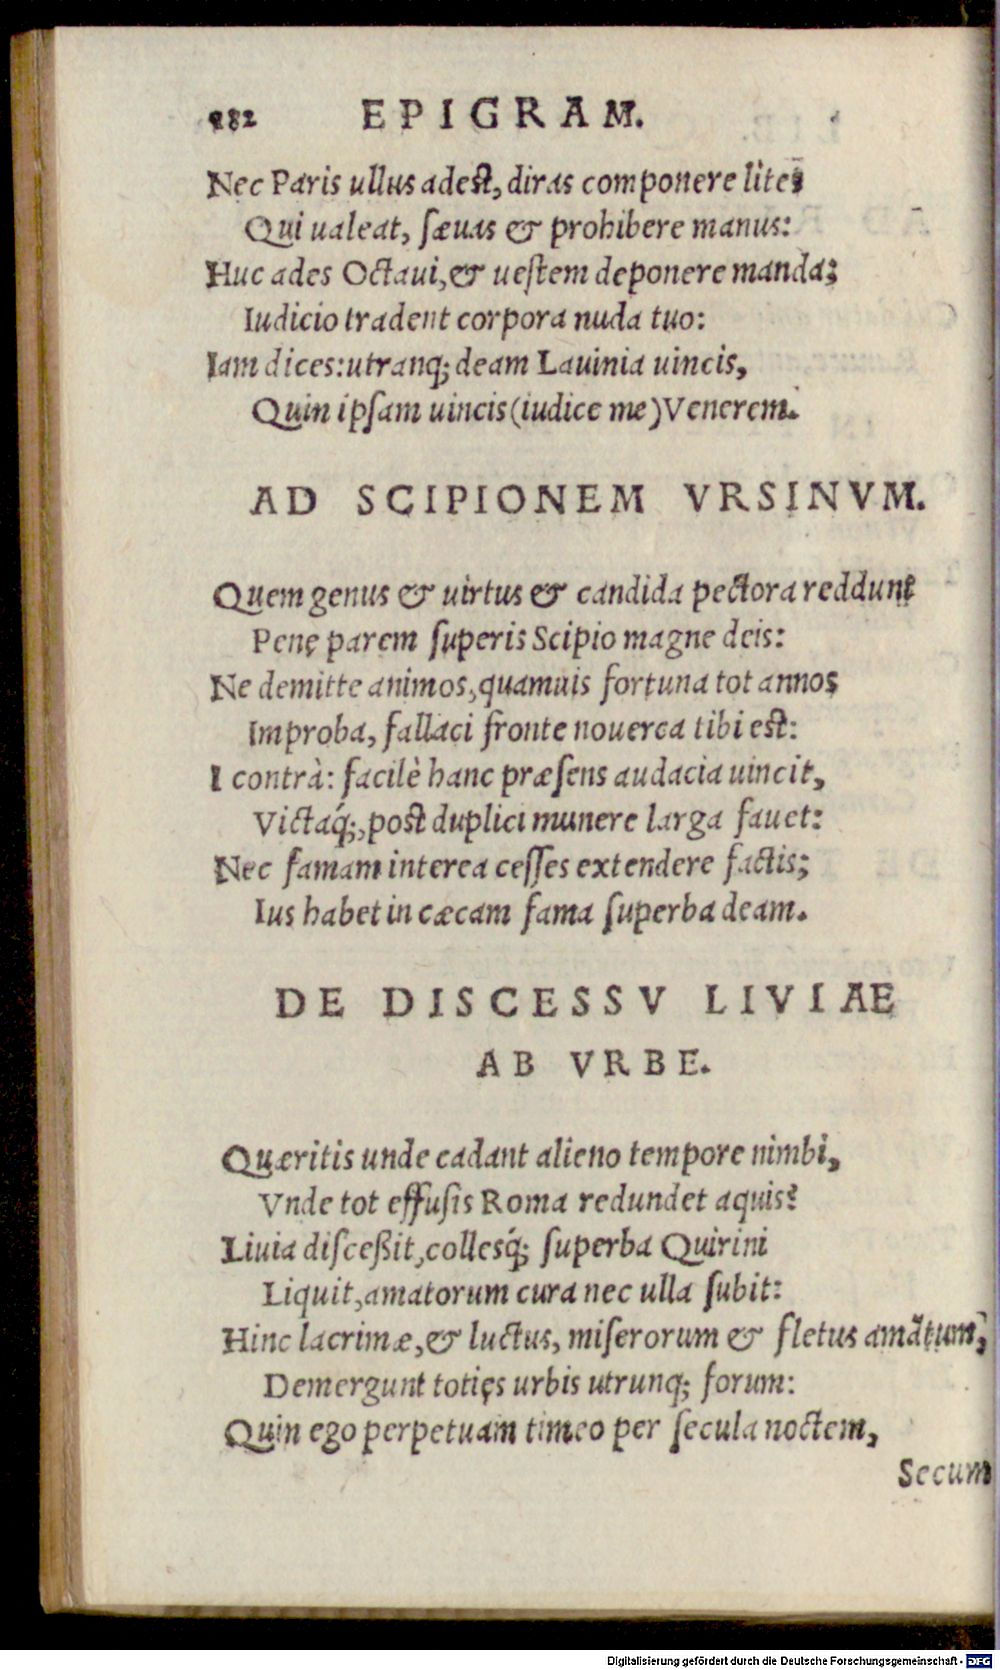 182 EPIGRAM.
Nec Paris ullus adest, diras componere lites
Qui ualeat, sæuas & prohibere manus:
Huc ades Octaui, & uestem deponere manda;
Iudicio tradent corpora nuda tuo:
Iam dices: utranq; deam Lauinia uincis,
Quin ipsam uincis (iudice me) Venerem.
AD SCIPIONEM VRSINVM.
Quem genus & uirtus & candida pectora reddunt
Penę parem superis Scipio magne deis:
Ne demitte animos, quamuis fortuna tot annos
Improba, fallaci fronte nouerca tibi est:
I contrà: facilè hanc præsens audacia uincit,
Victaq́;, post duplici munere larga fauet:
Nec famam interea cesses extendere factis;
Ius habet in cæcam fama superba deam.
DE DISCESSV LIVIAE
AB VRBE.
Quæritis unde cadant alieno tempore nimbi,
Vnde tot effusis Roma redundet aquis?
Liuia disceßit, collesq́; superba Quirini
Liquit, amatorum cura nec ulla subit:
Hinc lacrimæ, & luctus, miserorum & fletus amãtum,
Demergunt totięs urbis utrunq; forum:
Quin ego perpetuam timeo per secula noctem,
Secum
Digitalisierung gefördert durch die Deutsche Forschungsgemeinschaft - DFG